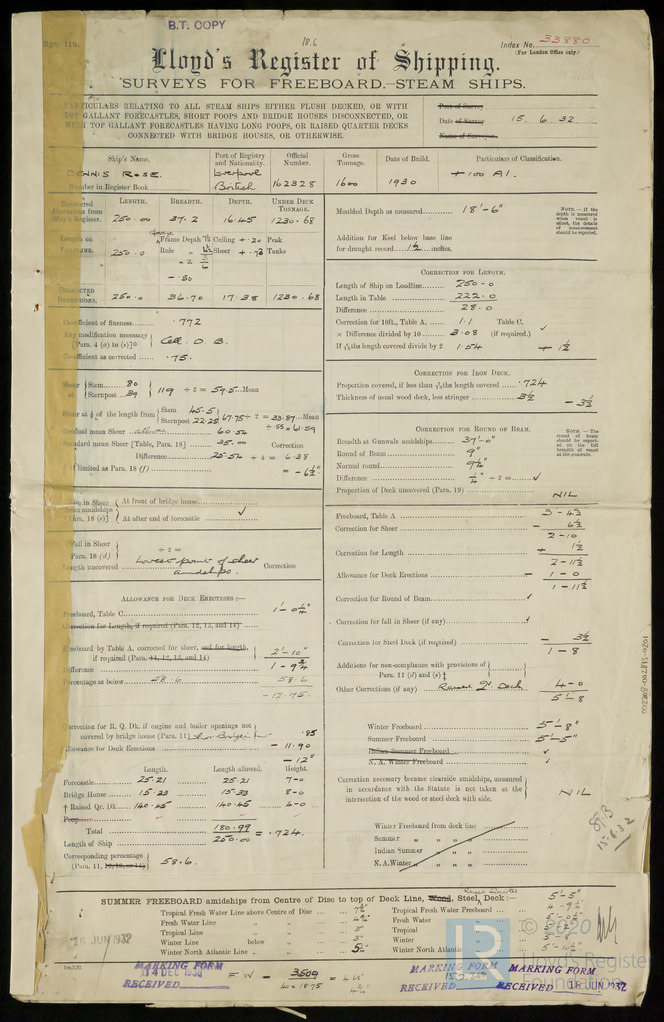 B.T. COPY
18.6
Rpt. 11b.
Index No. 33880
(For London Office only.)
Lloyd's Register of Shipping.
SURVEYS FOR FREEBOARD.—STEAM SHIPS.
PARTICULARS RELATING TO ALL STEAM SHIPS EITHER FLUSH DECKED, OR WITH
TOP GALLANT FORECASTLES, SHORT POOPS AND BRIDGE HOUSES DISCONNECTED, OR
WITH TOP GALLANT FORECASTLES HAVING LONG POOPS, OR RAISED QUARTER DECKS
CONNECTED WITH BRIDGE HOUSES, OR OTHERWISE.
Port of Survey
Date of Survey 15. 6. 32.
Name of Surveyor
Ship's Name. Port of Registry and Nationality. Official Number. Gross Tonnage. Date of Build. Particulars of Classification.
DENNIS ROSE. Liverpool British 162328 1600 1930 + 100 A1.
Number in Register Book
LENGTH. BREADTH. DEPTH. UNDER DECK TONNAGE.
Registered dimensions from Ship's Register. 250.00 37.2 16.45 1230.68
Length on LOADLINE. 250.0 Frame Depth 7½ Ceiling + .20 Peak
Rule Sheer + .73 Tanks
- .50
CORRECTED DIMENSIONS. 250.0 36.70 17.38 1230.68
Coefficient of fineness .772
Any modification necessary [Para. 4 (a) to (e)] Cell. D. B.
Coefficient as corrected .75.
Sheer at Stem 80 Sternpost 39 119 ÷ 2 = 59.5 Mean
Sheer at ⅛ of the length from Stem 45.5 Sternpost 22.25 67.75 ÷ 2 = 33.87 Mean
÷ .55 = 61.59
Gradual mean Sheer allowed 60.54
Standard mean Sheer [Table, Para. 18] 35.00 Correction
Difference 25.54 ÷ 4 = 6.38
If limited as Para. 18 (f) = - 6½"
Rise in Sheer from amidships [Para. 18 (e)] At front of bridge house
At after end of forecastle ✓
Fall in Sheer Para. 18 (d) ÷ 2 =
Length uncovered Lowest point of sheer amidships. Correction
ALLOWANCE FOR DECK ERECTIONS:—
Freeboard, Table C 1'- 0¼"
Correction for Length, if required (Para. 12, 13, and 14)
Freeboard by Table A. corrected for sheer, and for length, if required (Para. 11, 12, 13, and 14) 2'- 10"
Difference 1 - 9¾
Percentage as below 58.6 58.6
- 12.75.
Correction for R. Q. Dk. if engine and boiler openings not covered by bridge house (Para. 11) .85
Allowance for Deck Erections - 11.90
- 12"
Length. Length allowed. Height.
Forecastle 25.21 25.21 7-0
Bridge House 15.33 15.33 8-0
† Raised Qr. Dk. 140.45 140.45 4-0
Poop
Total 180.99 = .724.
Length of Ship 250.00
Corresponding percentage (Para. 11, 12, 13, or 14) 58.6.
Moulded Depth as measured 18'-6"
Addition for Keel below base line for draught record 1½ inches.
NOTE.—If the depth is measured when vessel is afloat, the details of measurement should be reported.
CORRECTION FOR LENGTH.
Length of Ship on Loadline 250-0
Length in Table 222.0
Difference 28.0
Correction for 10ft., Table A. 1.1 Table C.
× Difference divided by 10 3.08 (if required.) ✓
If 6/10ths length covered divide by 2 1.54 + 1½
CORRECTION FOR IRON DECK.
Proportion covered, if less than 7/10ths length covered .724
Thickness of usual wood deck, less stringer 3½ - 3½
CORRECTION FOR ROUND OF BEAM.
Breadth at Gunwale amidships 37'-0"
Round of Beam 9"
Normal round 9¼"
Difference ¼" ÷ 2 = ✓
Proportion of Deck uncovered (Para. 19) NIL
NOTE.—The round of beam should be reported on the full breadth of vessel at the gunwale.
Freeboard, Table A 3 - 4½
Correction for Sheer - 6½
2 - 10
Correction for Length + 1½
2 - 11½
Allowance for Deck Erections - 1 - 0
1 - 11½
Correction for Round of Beam ✓
Correction for fall in Sheer (if any) ✓
Correction for Steel Deck (if required) - 3½
1 - 8
Additions for non-compliance with provisions of Para. 11 (d) and (e) ‡
Other Corrections (if any) Raised Q. Deck 4 - 0
5 - 8
Winter Freeboard 5'- 8"
Summer Freeboard 5'- 5"
Indian Summer Freeboard ✓
N. A. Winter Freeboard ✓
Correction necessary because clearside amidships, measured in accordance with the Statute is not taken at the intersection of the wood or steel deck with side. NIL
Winter Freeboard from deck line
Summer " " " "
Indian Summer " " " "
N. A. Winter " " " "
15.6.32
SUMMER FREEBOARD amidships from Centre of Disc to top of Deck Line, Wood, Steel, Raised Quarter Deck:— 5'-5"
Tropical Fresh Water Line above Centre of Disc Tropical Fresh Water Freeboard 4 - 9½
Fresh Water Line " " Fresh Water "
Tropical Line " " 3" Tropical "
Winter Line below " 3" Winter "
Winter North Atlantic Line " " Winter North Atlantic "
16 JUN 1932
MARKING FORM
RECEIVED
FW = 3509
40 × 18.75
MARKING FORM
RECEIVED
MARKING FORM
RECEIVED 18 JUN 1932
LR
© 2020
Lloyd's Register
Foundation